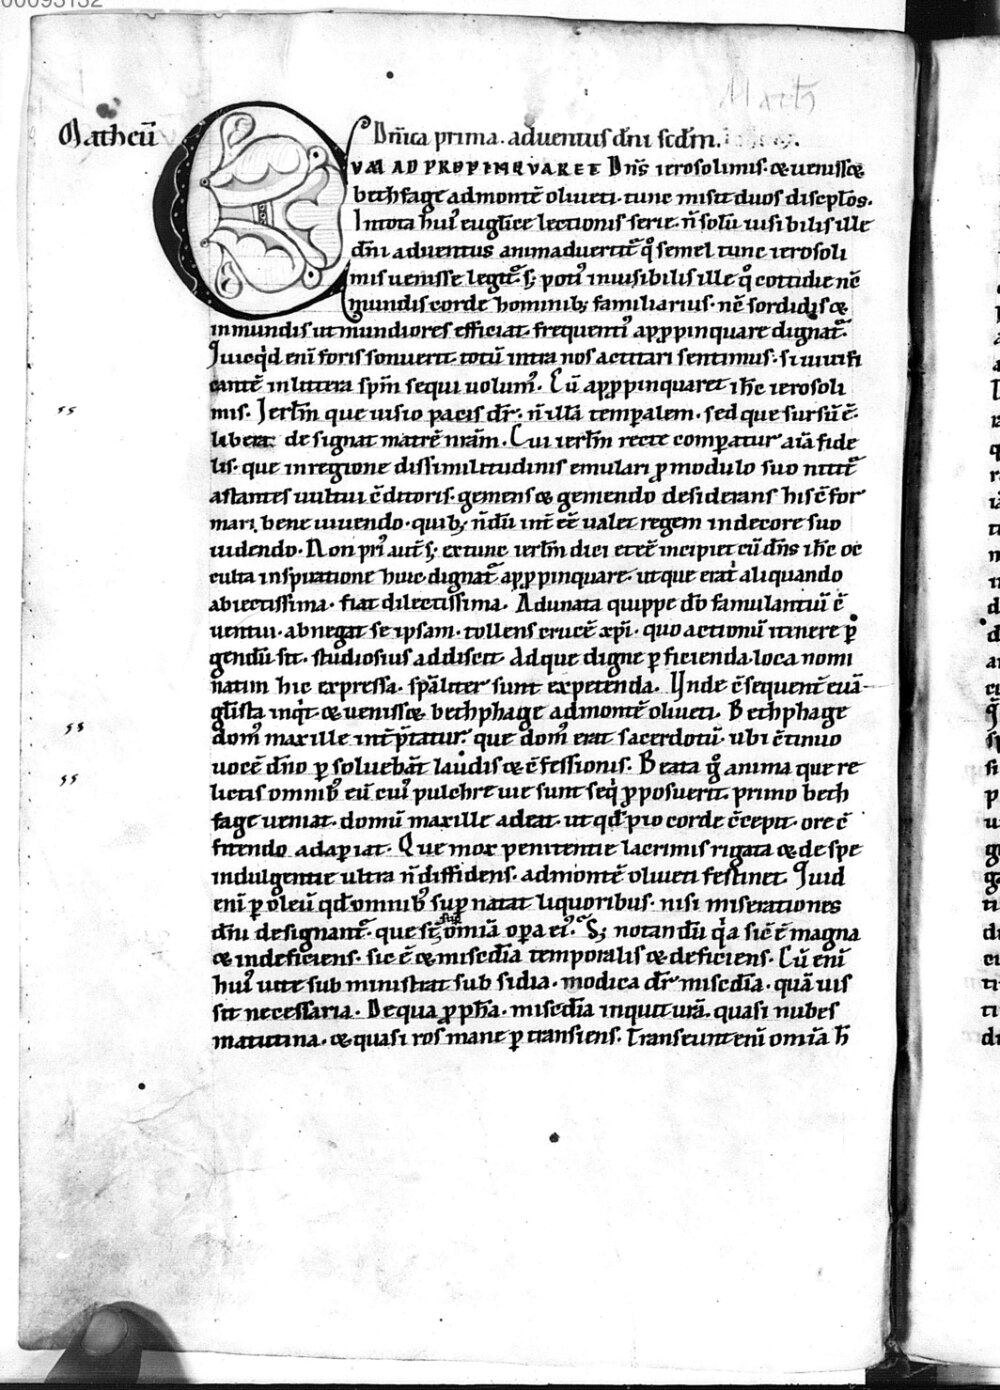 00093132
Matheū
Dn̄ica prima. aduentus dn̄i scdm̄.
CVM AD PROPINQVARET Dn̄s ierosolimis. & uenisset
bethfage ad montē oliueti. tunc misit duos discip̄los.
In tota hui᾽ eugl̄ice lectionis serie. n̄ solū uisibilis ille
dn̄i aduentus animaduertit᷑ q̊ semel tunc ierosoli
mis uenisse legit᷑. s; poti᾽ inuisibilis ille q̊ cottidie nē
mundis corde hominib; familiarius. nē sordidis &
inmundis ut mundiores efficiat. frequenti᾽ app̄ropinquare dignat᷑.
Quicq̇d enī foris sonuerit. totū intra nos actitari sentimus. si uiuifi
cantē in littera sp̄m sequi uolum᾽. Cū app̄ropinquaret ih̄c ierosoli
mis. Ierlm̄ que uisio pacis dr̄. n̄ illā temp̄alem. sed que sursū ē.
libera designat matrē nr̄am. Cui ierlm̄ recte comp̄atur aīa fide
lis. que in regione dissimilitudinis emulari p̄ modulo suo nitit᷑
astantes uultui c̄ditoris. gemens & gemendo desiderans his c̄for
mari. bene uiuendo. quib; n̄dū int̄ eē ualet regem in decore suo
uidendo. Non pri᾽ aut̄ s; ex tunc ierlm̄ dici et eē incipiet cū dn̄s ih̄c oc
culta inspiratione huic dignat᷑ app̄ropinquare. ut que erat aliquando
abiectissima. fiat dilectissima. Adunata quippe do famulantiū c̄
uentui. abnegat se ipsam. tollens crucē xp̄i. quo actionū itinere p̄
gendū sit. studiosius addiscit. Ad que digne p̄ficienda. loca nomi
natim hic expressa. sp̄aliter sunt expetenda. Vnde c̄sequent̄ euā
glīsta inq̇t. & uenisset bethphage ad montē oliueti. Bethphage
dom᾽ maxille int̄p̄tatur. que dom᾽ erat sacerdotū. ubi c̄tinuo
uocē dn̄o p̄soluebāt laudis & c̄fessionis. Beata g̊ anima que re
lictis omnib᾽ eū cui᾽ pulchre uie sunt seq̇ p̄posuerit. primo beth
fage ueniat. domū maxille adeat. ut qd̄ pio corde c̄cepit. ore c̄
fitendo adap̄iat. Que mox penitentie lacrimis rigata & de spe
indulgentie ultra n̄ diffidens. ad montē oliueti festinet. Quid
enī p̄ oleū qd̄ omnib᾽ sup̄natat liquoribus. nisi miserationes
dn̄i designant᷑. que st̄ sup̄ omīa op̄a ei᾽. S; notandū q̇a sic ē magna
& indeficiens. sic ē & misc̄dia temporalis & deficiens. Cū enī
hui᾽ uite subministrat subsidia. modica dr̄ misc̄dia. quā uis
sit necessaria. De qua p̄ph̄a. misc̄dia inquit ur̄a. quasi nubes
matutina. & quasi ros mane p̄transiens. Transeunt enī omīa h̄